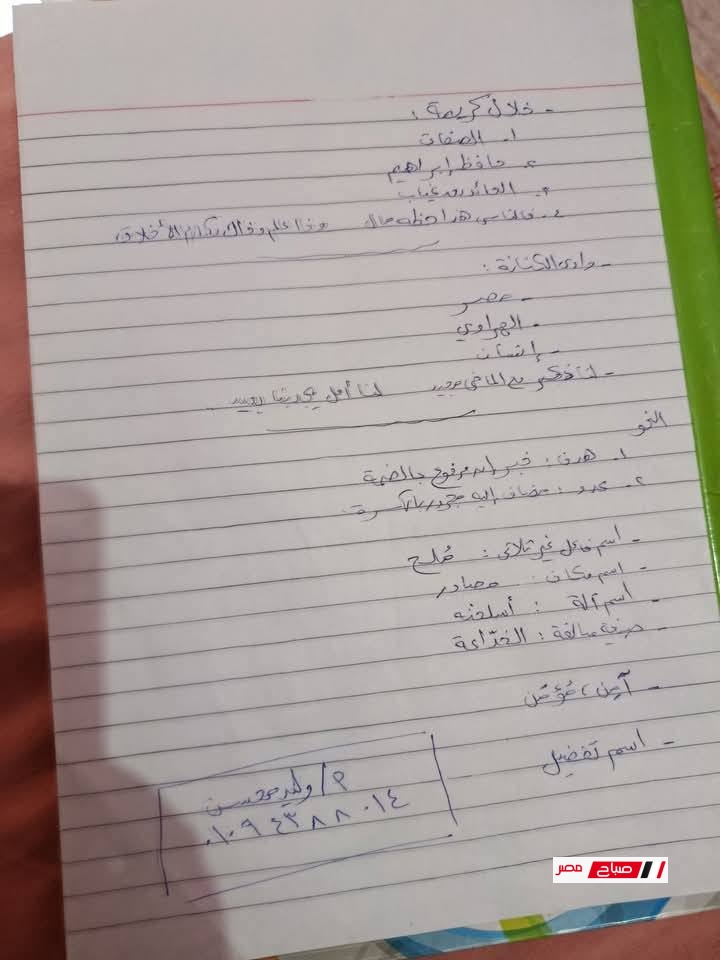 - خلال كريمة :
١- الصفات
٢- حافظ إبراهيم
٣- العائد بعد غياب
٤- فالناس هذا حظه مال وذا علم وذاك مكارم الأخلاق
- وادى الكنانة :
- مصر
- الهراوي
- إنسان
- لنا ذكر مع الماضى مجيد لنا أمل يجد بنا بعيد
النحو
١- هدف : خبر إن مرفوع بالضمة
٢- عدو : مضاف إليه مجرور بالكسرة
- اسم فاعل غير ثلاثى : مُلح
- اسم مكان : مصادر
- اسم آلة : أسلحته
- صيغة مبالغة : الخدّاعة
- آمِن ، مُؤمن
- اسم تفضيل
م / وليد محسن
٠١٠٩٤٣٨٨٠١٤
صباح مصر